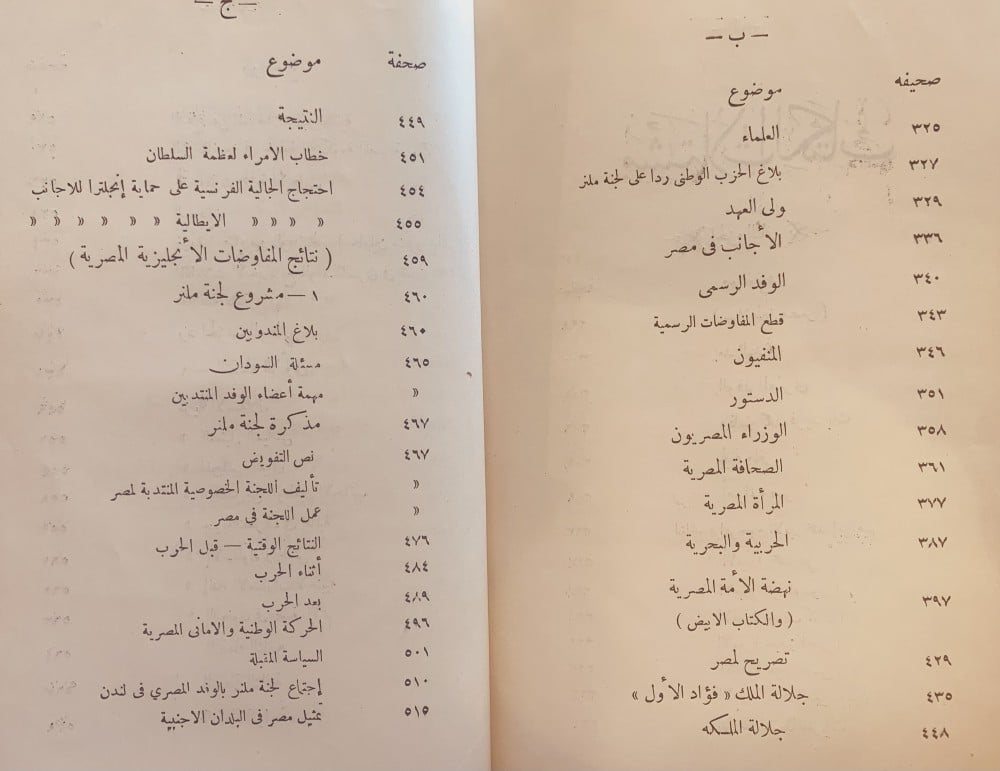 — ب —
صحيفه موضوع
٣٢٥ العلماء
٣٢٧ بلاغ الحزب الوطنى ردا على لجنة ملنر
٣٢٩ ولى العهد
٣٣٦ الأجانب فى مصر
٣٤٠ الوفد الرسمى
٣٤٣ قطع المفاوضات الرسمية
٣٤٦ المنفيون
٣٥١ الدستور
٣٥٨ الوزراء المصريون
٣٦١ الصحافة المصرية
٣٧٧ المرأة المصرية
٣٨٧ الحربية والبحرية
٣٩٧ نهضة الأمة المصرية
( والكتاب الابيض )
٤٢٩ تصريح لمصر
٤٣٥ جلالة الملك « فؤاد الأول »
٤٤٨ جلالة الملكه
— ج —
صحفة موضوع
٤٤٩ النتيجة
٤٥١ خطاب الأمراء لعظمة السلطان
٤٥٤ احتجاج الجالية الفرنسية على حماية إنجلترا للاجانب
٤٥٥ » » » » الايطالية » » » » » »
٤٥٩ ( نتائج المفاوضات الأنجليزية المصرية )
٤٦٠ ١ — مشروع لجنة ملنر
٤٦٠ بلاغ المندوبين
٤٦٥ مسئلة السودان
» مهمة أعضاء الوفد المنتدبين
٤٦٧ مذكرة لجنة ملنر
٤٦٧ نص التفويض
» تأليف اللجنة الخصوصية المنتدبة لمصر
» عمل اللجنة في مصر
٤٧٦ النتائج الوقتية — قبل الحرب
٤٨٤ أثناء الحرب
٤٨٩ بعد الحرب
٤٩٦ الحركة الوطنية والامانى المصرية
٥٠١ السياسة المقبلة
٥١٠ إجتماع لجنة ملنر بالوفد المصري فى لندن
٥١٥ تمثيل مصر فى البلدان الاجنبية